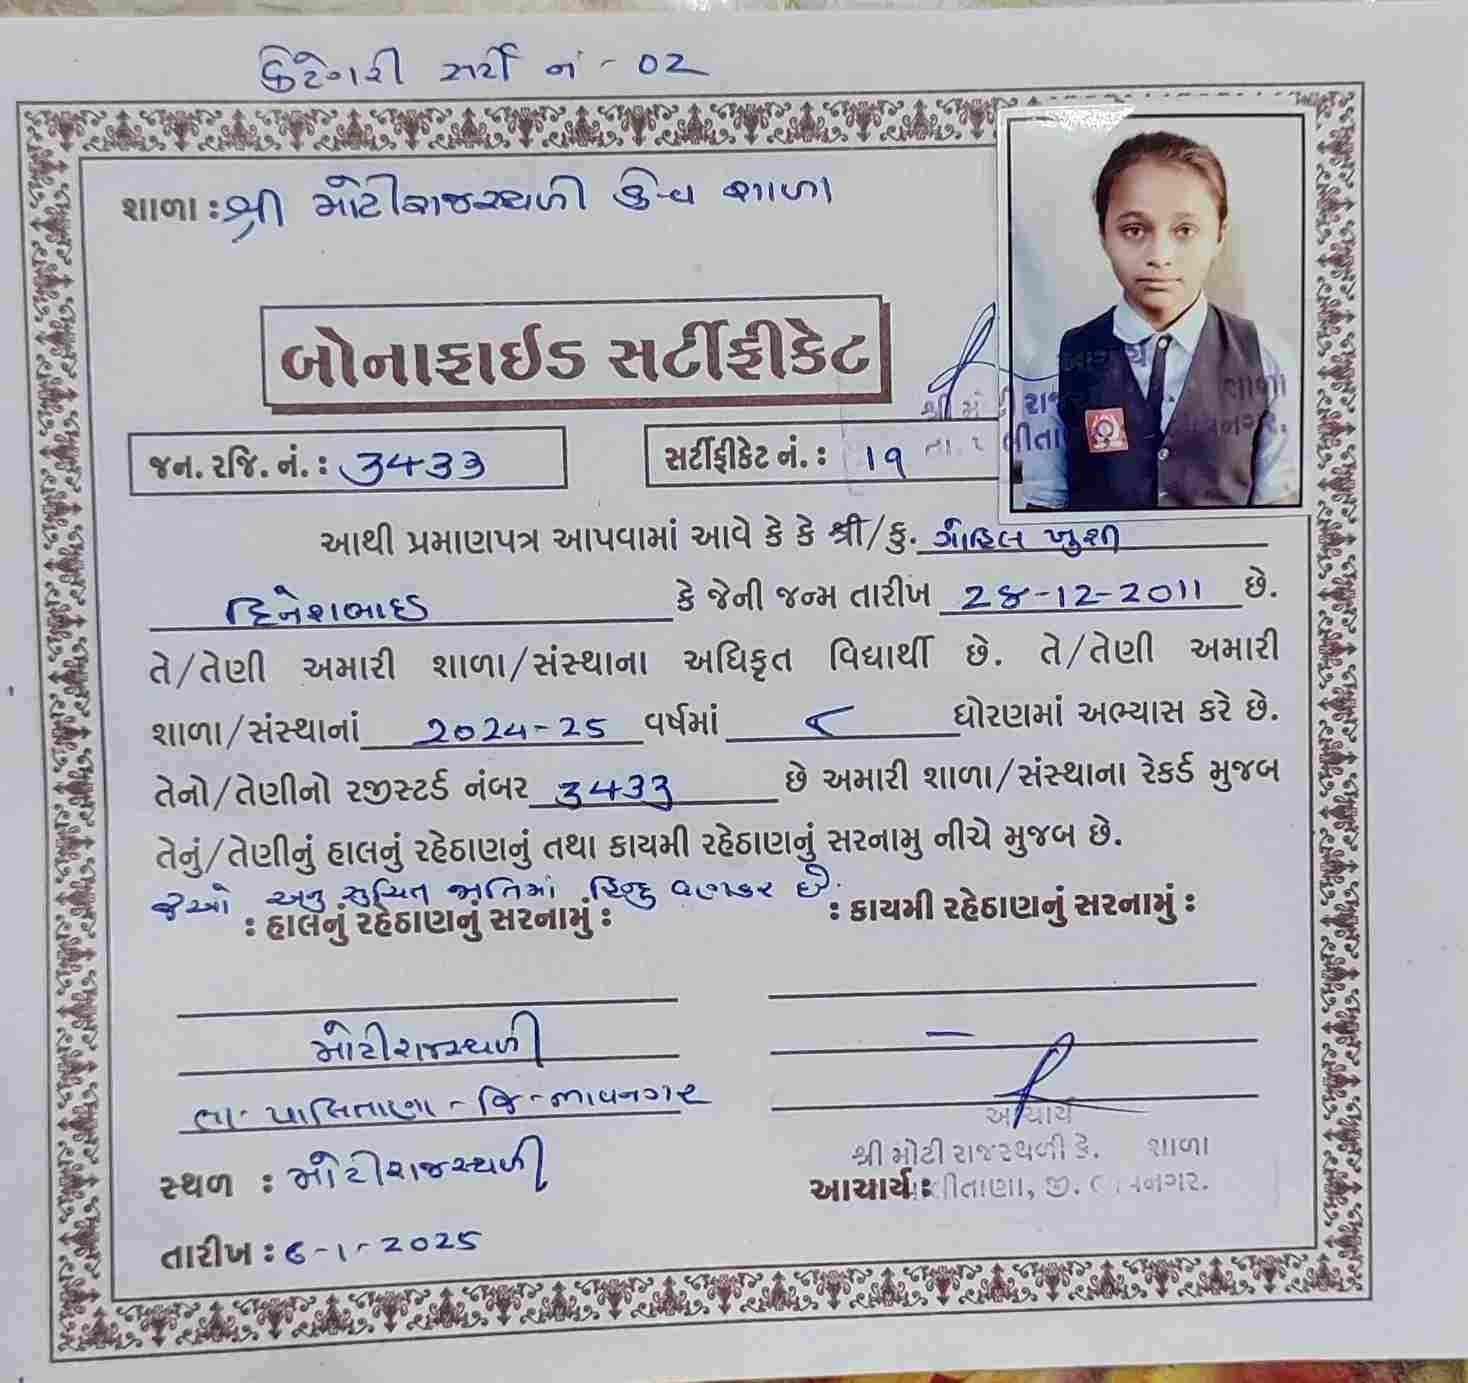 કેટેગરી સર્ટી નં - 02
શાળા : શ્રી મોટીરાજસ્થળી કે.વ શાળા
બોનાફાઈડ સર્ટીફીકેટ
જન. રજિ. નં. : 3433
સર્ટીફીકેટ નં. : 19
આથી પ્રમાણપત્ર આપવામાં આવે કે કે શ્રી/કુ. ગોહિલ ખુશી
દિનેશભાઈ કે જેની જન્મ તારીખ 28-12-2011 છે.
તે/તેણી અમારી શાળા/સંસ્થાના અધિકૃત વિદ્યાર્થી છે. તે/તેણી અમારી
શાળા/સંસ્થાનાં 2024-25 વર્ષમાં ૮ ધોરણમાં અભ્યાસ કરે છે.
તેનો/તેણીનો રજીસ્ટર્ડ નંબર 3433 છે અમારી શાળા/સંસ્થાના રેકર્ડ મુજબ
તેનું/તેણીનું હાલનું રહેઠાણનું તથા કાયમી રહેઠાણનું સરનામુ નીચે મુજબ છે.
જેઓ અનુસુચિત જાતિમાં હિન્દુ વણકર છે.
: હાલનું રહેઠાણનું સરનામું :
: કાયમી રહેઠાણનું સરનામું :
મોટીરાજસ્થળી
-
તા- પાલિતાણા - જિ - ભાવનગર
આચાર્ય
શ્રી મોટી રાજસ્થળી કે. શાળા
સ્થળ : મોટીરાજસ્થળી
આચાર્ય : જી.
તારીખ : 6-1-2025